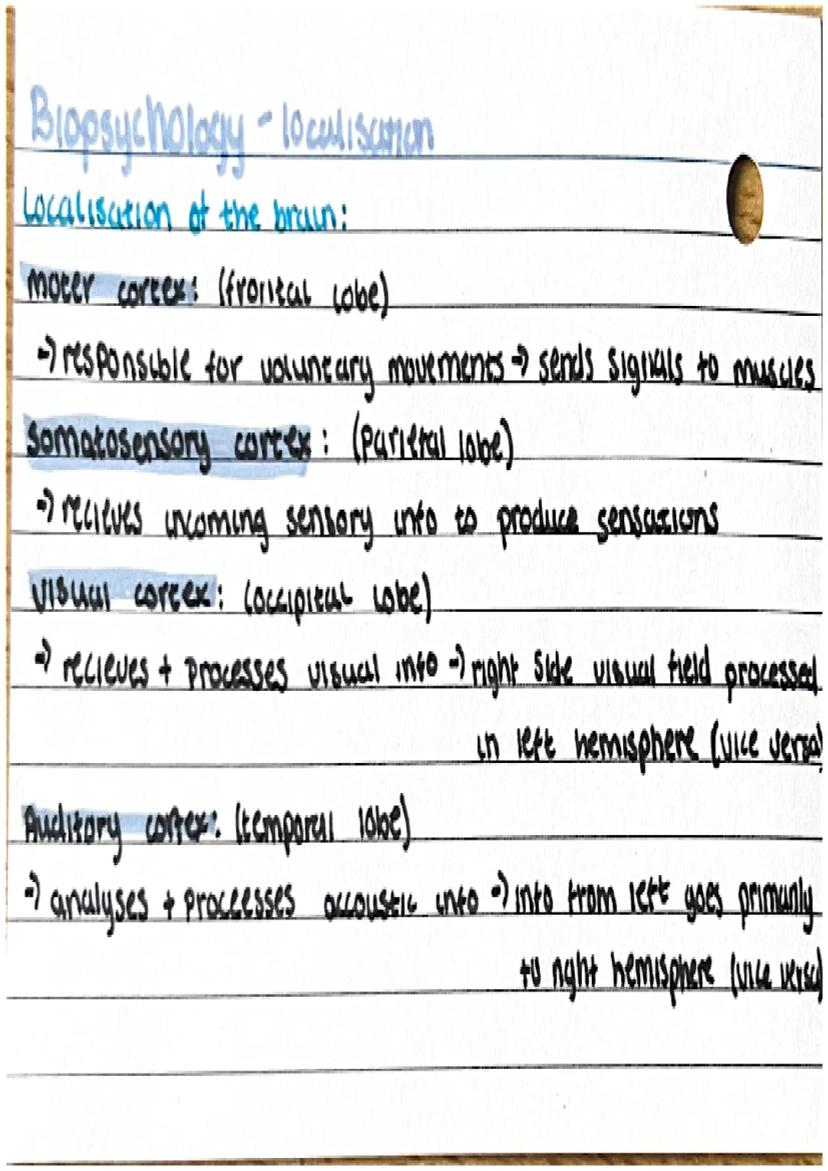 Biopsychology - localisation
Localisation of the brain:
moter cortex: (frontal lobe)
→ responsible for voluntary movements → sends signals to muscles
somatosensory cortex: (Parietal lobe)
→ recieves incoming sensory info to produce sensations
visual cortex: (occipital lobe)
→ recieves + processes visual info → right side visual field processed
in left hemisphere (vice versa)
Auditory cortex: (temporal lobe)
→ analyses + proccesses accoustic info → info from left goes primarily
to right hemisphere (vice versa)